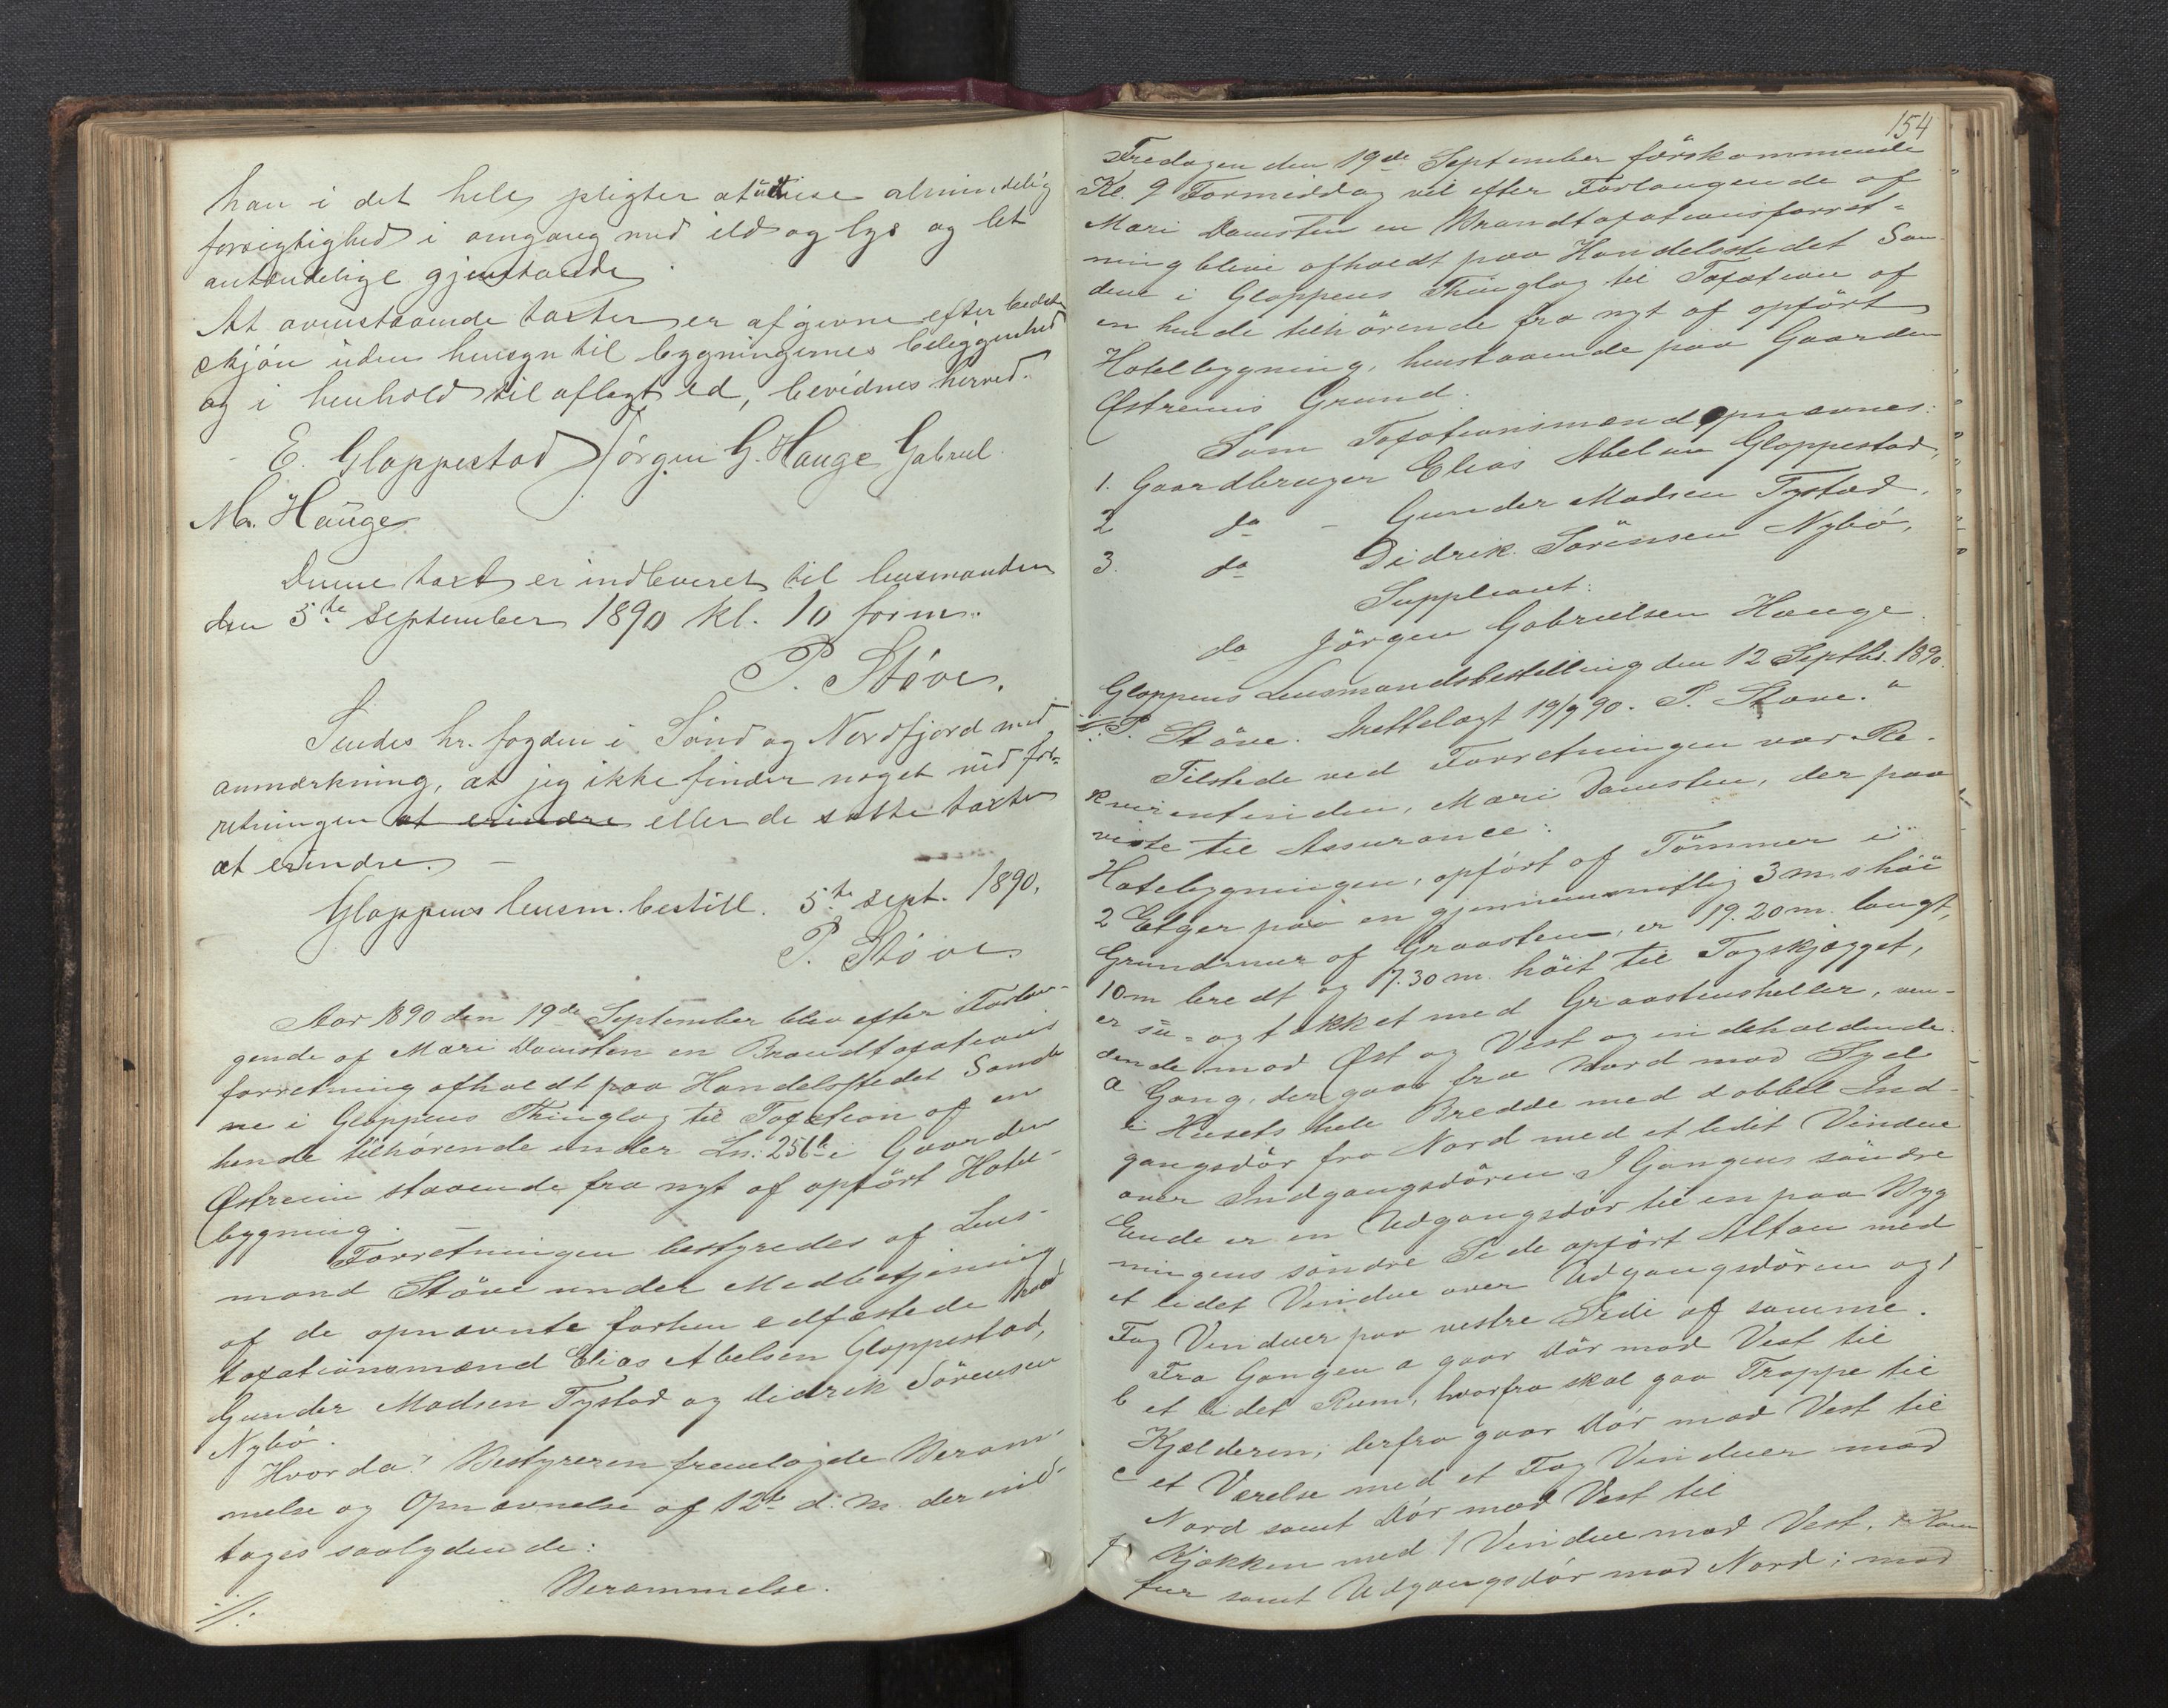 han i det hele pligter at udvise almindelig
forsigtighed i omgang med ild og lys og let
antændelige gjenstande.
At ovenstaaende taxter er afgivne efter bedste
skjøn uden hensyn til bygningernes beliggenhed
og i henhold til aflagt ed, bevidnes herved.
E. Gloppestad Jørgen G. Hauge Gabriel
M. Hauge
Denne taxt er indleveret til lensmanden
den 5te september 1890 kl. 10 form.
P. Støve.
Sendes hr. fogden i Sønd og Nordfjord med
anmærkning, at jeg ikke finder noget ved for-
retningen at erindre eller de satte taxter
at erindre. —
Gloppens lensm. bestill. 5te sept. 1890.
P. Støve.
Aar 1890 den 19de September blev efter Forlan-
gende af Mari Damsten en Brandtaxations
forretning afholdt paa Handelsstedet Sande
ne i Gloppens Thinglag til Taxation af en
hende tilhörende under Ln: 256 i Gaarden
Østreim staaende fra nyt af opfört Hotel-
bygning. —
Forretningen bestyredes af Lens-
mand Stöve under Medbetjening
af de opnævnte forhen edfæstede
taxationsmænd Elias Abelsen Gloppestad,
Gunder Madsen Tystad og Didrik Sörensen
Nybö.
Hvorda: Bestyreren fremlagde Beram-
melse og Opnævnelse af 12te d. M. der ind-
tages saalydende:
Berammelse.
./.
154
Fredagen den 19de September førskommende
Kl. 9 Formiddag vil efter Forlangende af
Mari Damsten en Brandtaxationsforret-
ning blive afholdt paa Handelsstedet San-
dene i Gloppens Thinglag til Taxation af
en hende tilhörende fra nyt af opfört
Hotelbygning, henstaaende paa Gaarden
Østreims Grund.
Som Taxationsmænd opnævnes:
1. Gaardbruger Elias Abelsen Gloppestad,
2 do - Gunder Madsen Tystad,
3. do Didrik Sörensen Nybö,
Suppleant:
do Jörgen Gabrielsen Hauge.
Gloppens Lensmandsbestilling den 12 Septbr. 1890.
./. P. Stöve. Fretteslagt 19/9 90. P. Støve."
Tilstede ved Forretningen var Re-
kvirentinden, Mari Damsten, der paa
viste til Assurance:
Hotelbygningen, opfört af Tömmer i
2 Etger paa en gjennemsnitlig 3 m. höi
Grundmur af Graasten, er 19.20 m. langt,
10 m bredt og 7.30 m. höit til Tagskjægget,
er su- og tækket med Graastensheller, ven-
dende mod Øst og Vest og indeholdende.
a Gang, der gaar fra Nord mod Syd
i Husets hele Bredde med dobbel Ind-
gangsdör fra Nord med et lidet Vindue
over Indgangsdören I Gangens söndre
Ende er en Udgangsdör til en paa Byg
ningens söndre Side opfört Altan med
et lidet Vindue over Udgangsdören og 1
Fag Vinduer paa vestre Side af samme.
Fra Gangen a gaar Dör mod Vest til
b et lidet Rum, hvorfra skal gaa Trappe til
Kjælderen, derfra gaar Dör mod Vest til
c et Værelse med et Fag Vinduer mod
Nord samt Dör mod Vest til
f Kjøkken med 1 Vindue mod Vest, Kam
fur samt Udgangsdör mod Nord; mod